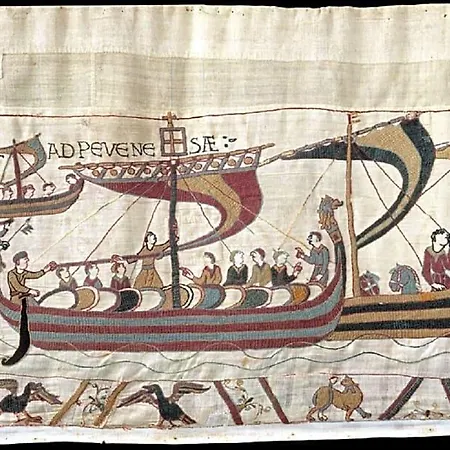 AD PEVENE SÆ :-